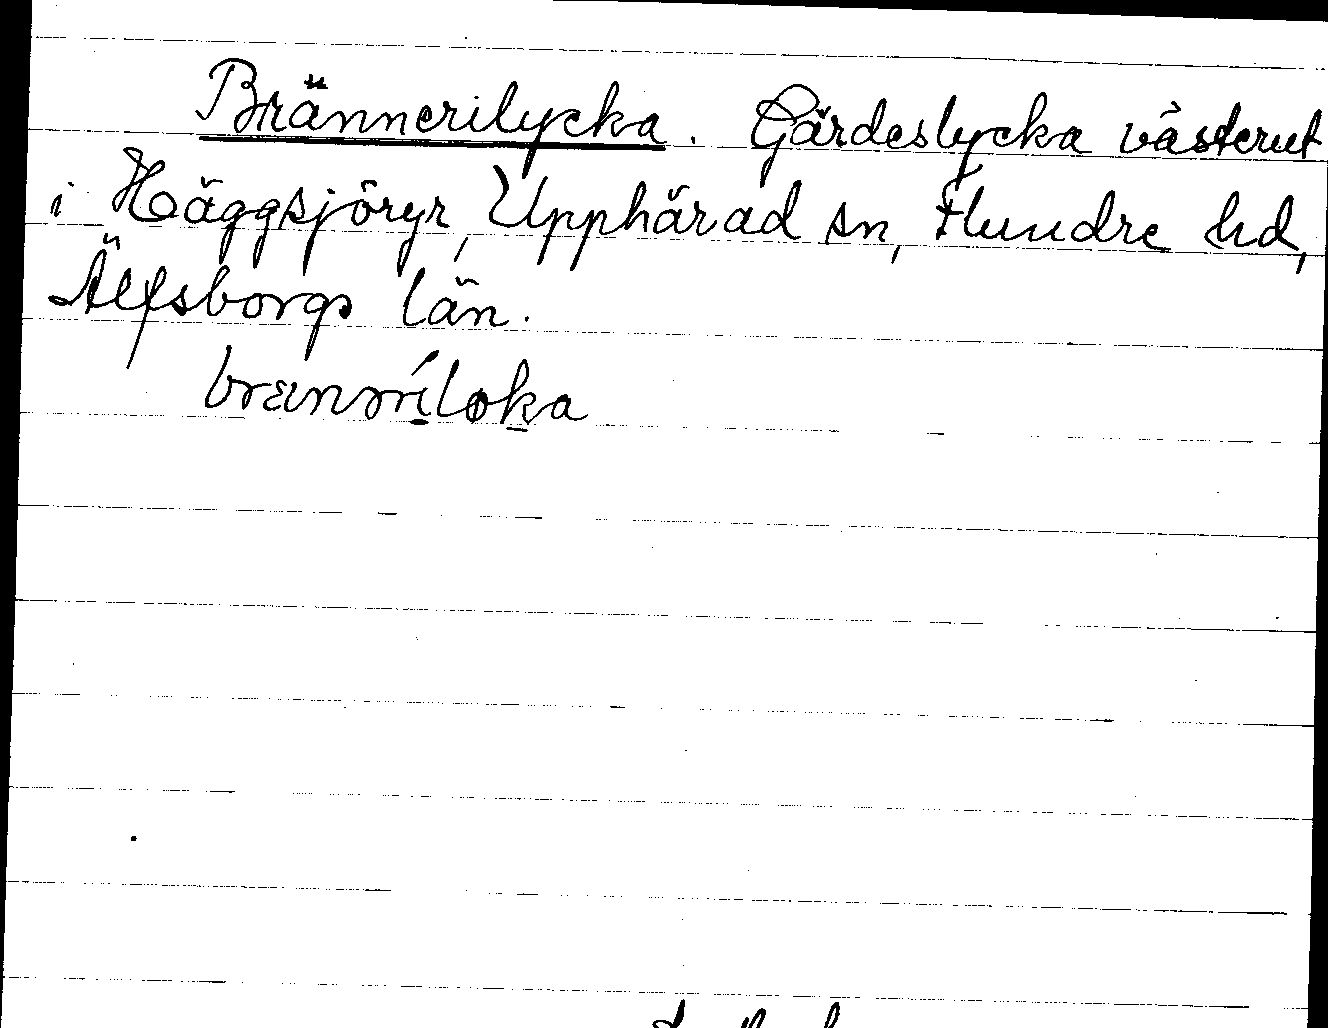 Brännerilycka. Gärdeslycka västerut
i Häggsjöryr, Upphärad sn, Flundre hd,
Älfsborgs län.